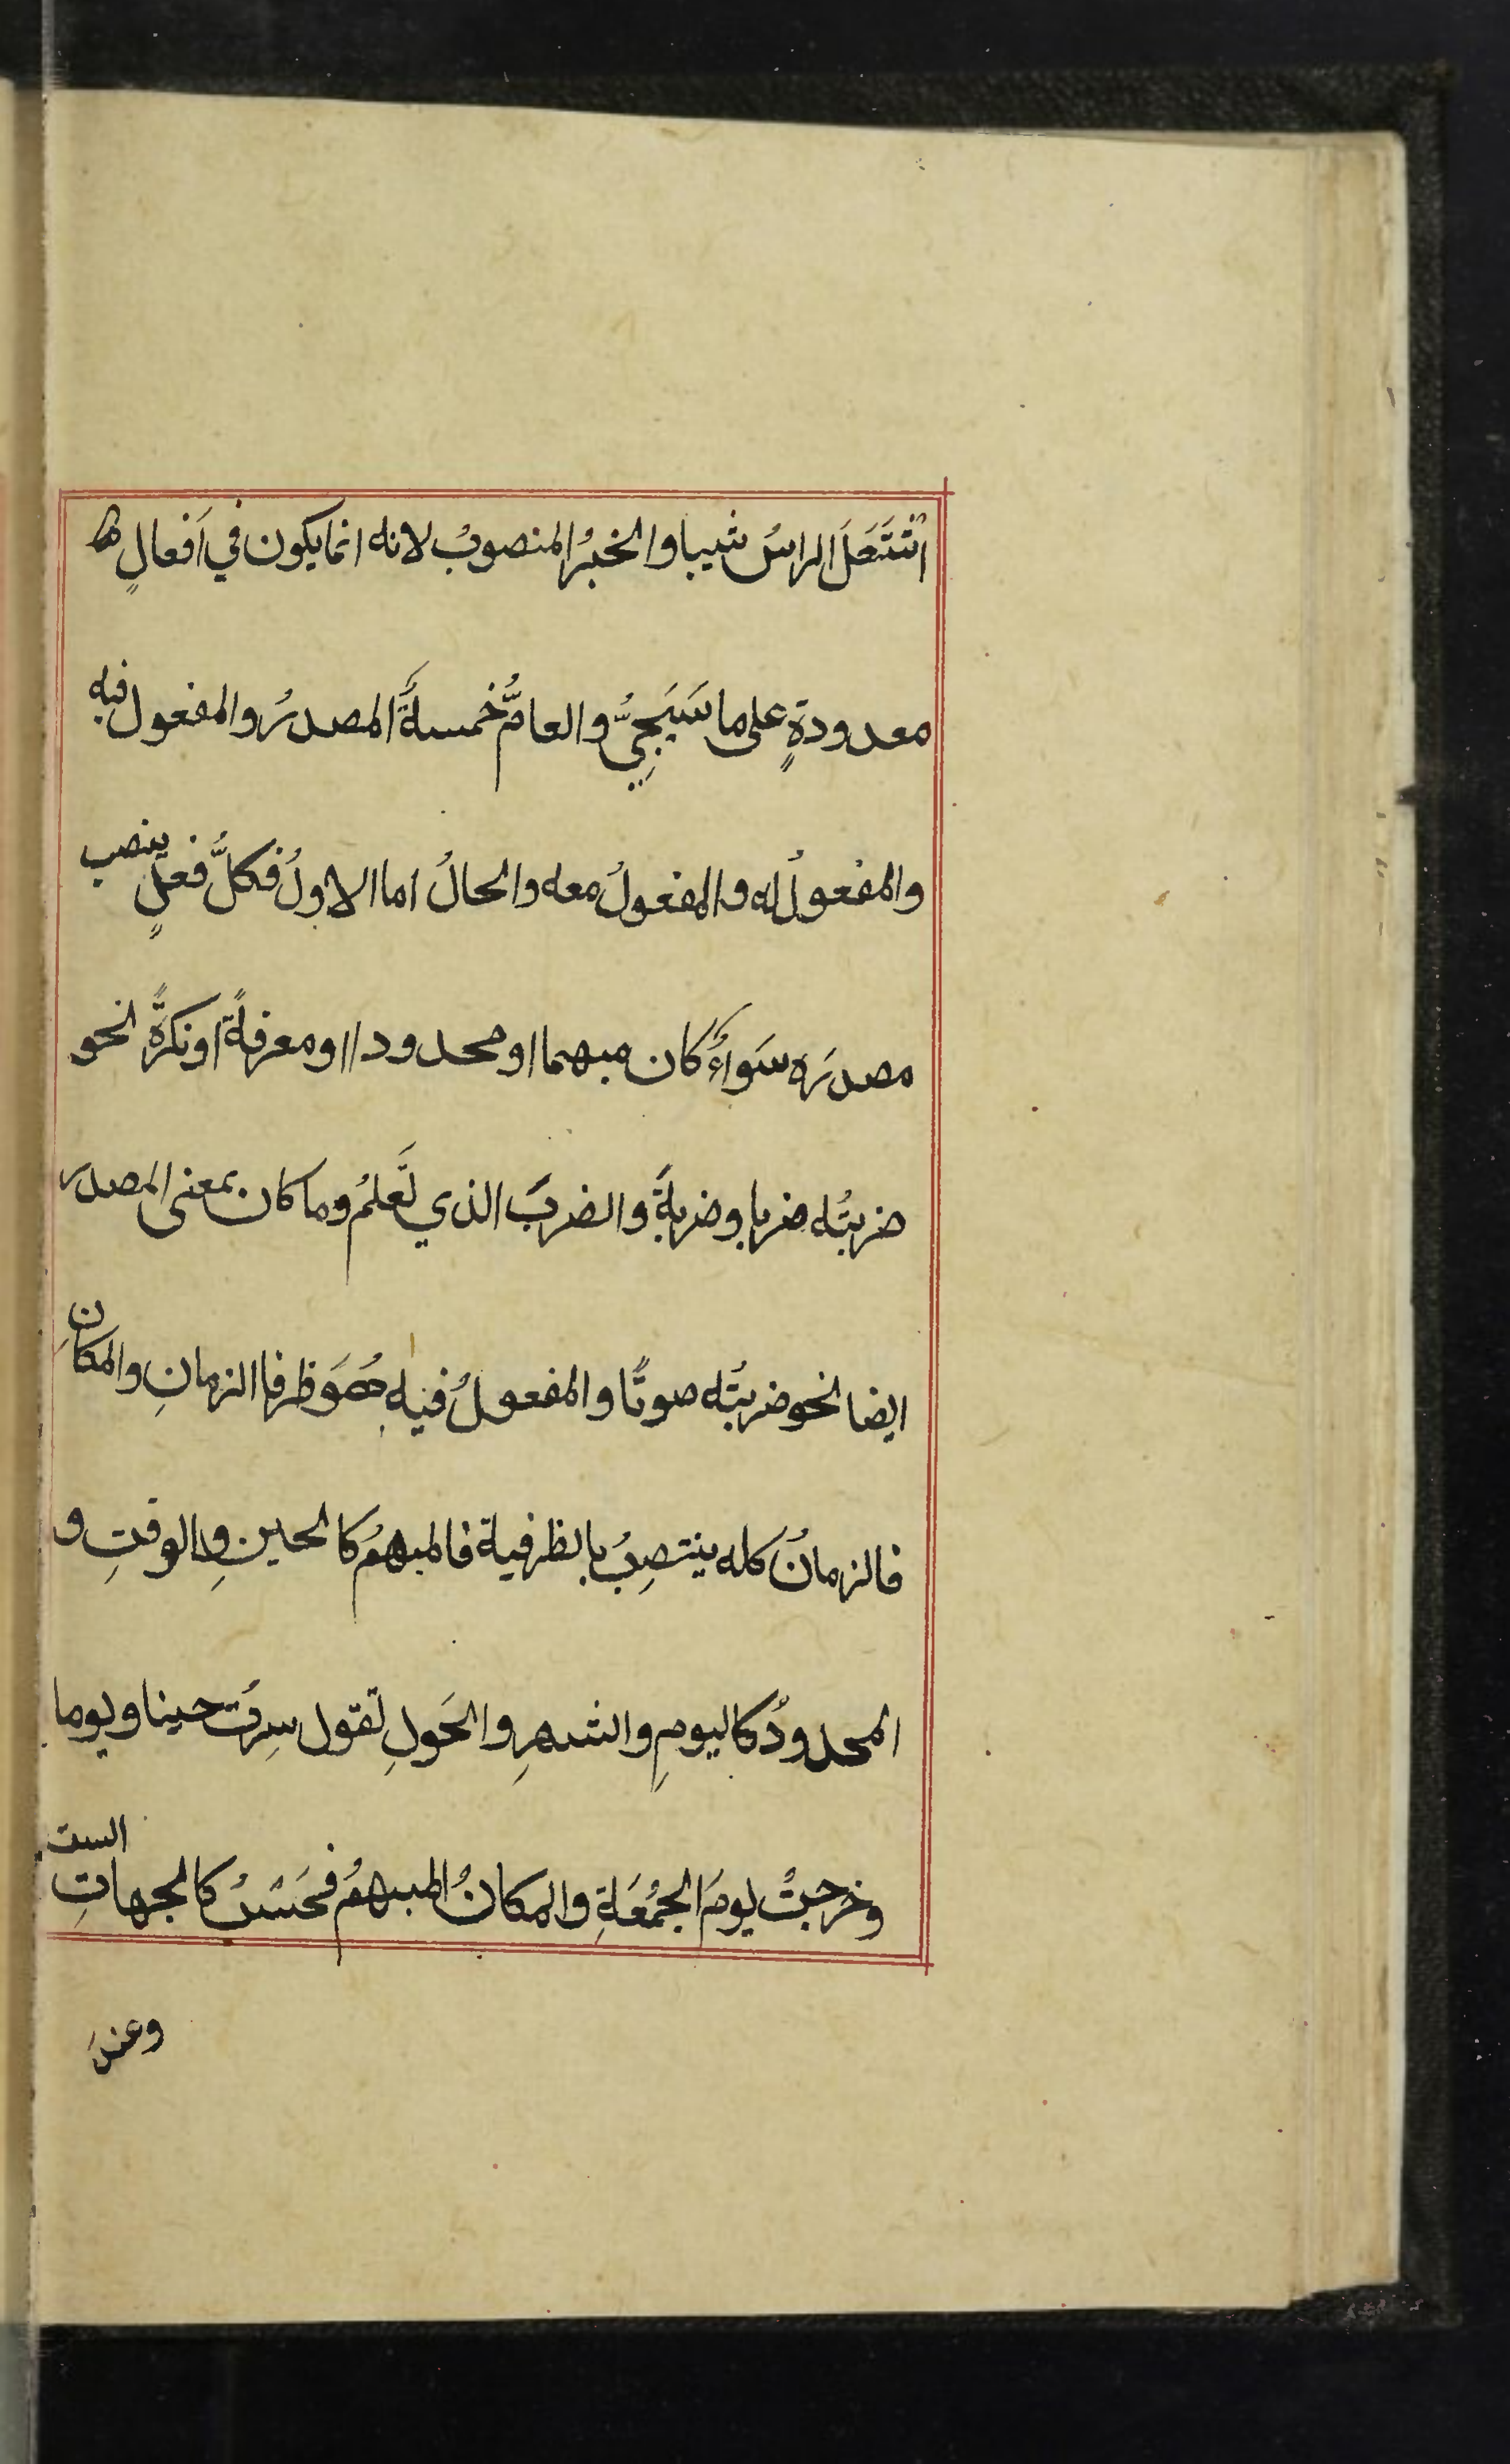 اشتَعَلَ الراسُ شيبا والخبرُ المنصوبُ لانه انما يكون في اَفعالٍ
معدودةٍ على ما سَيَجِيُّ والعامُّ خمسةٌ المصدرُ والمفعول فيه
والمفعولُ له والمفعولُ معه والحالُ اما الاولُ فكلُّ فعلٍ ينصب
مصدرَه سَواءٌ كان مبهما او محدودا او معرفةً او نكرةً نحو
ضربتُه ضربا وضربةً والضربَ الذي تَعلمُ وما كان بمعنى المصدر
ايضا نحو ضربتُه صوتًا والمفعولُ فيه هُوَ ظرفا الزمانِ والمكانِ
فالزمانُ كله ينتصِبُ بالظرفية فالمبهمُ كالحينِ والوقتِ و
المحدودُ كاليومِ والشهرِ والحَولِ تقول سِرتُ حينا ويوما
وخرجتُ يومَ الجُمُعَةِ والمكانُ المبهمُ فحَسْبُ كالجهاتِ الست
وعندَ